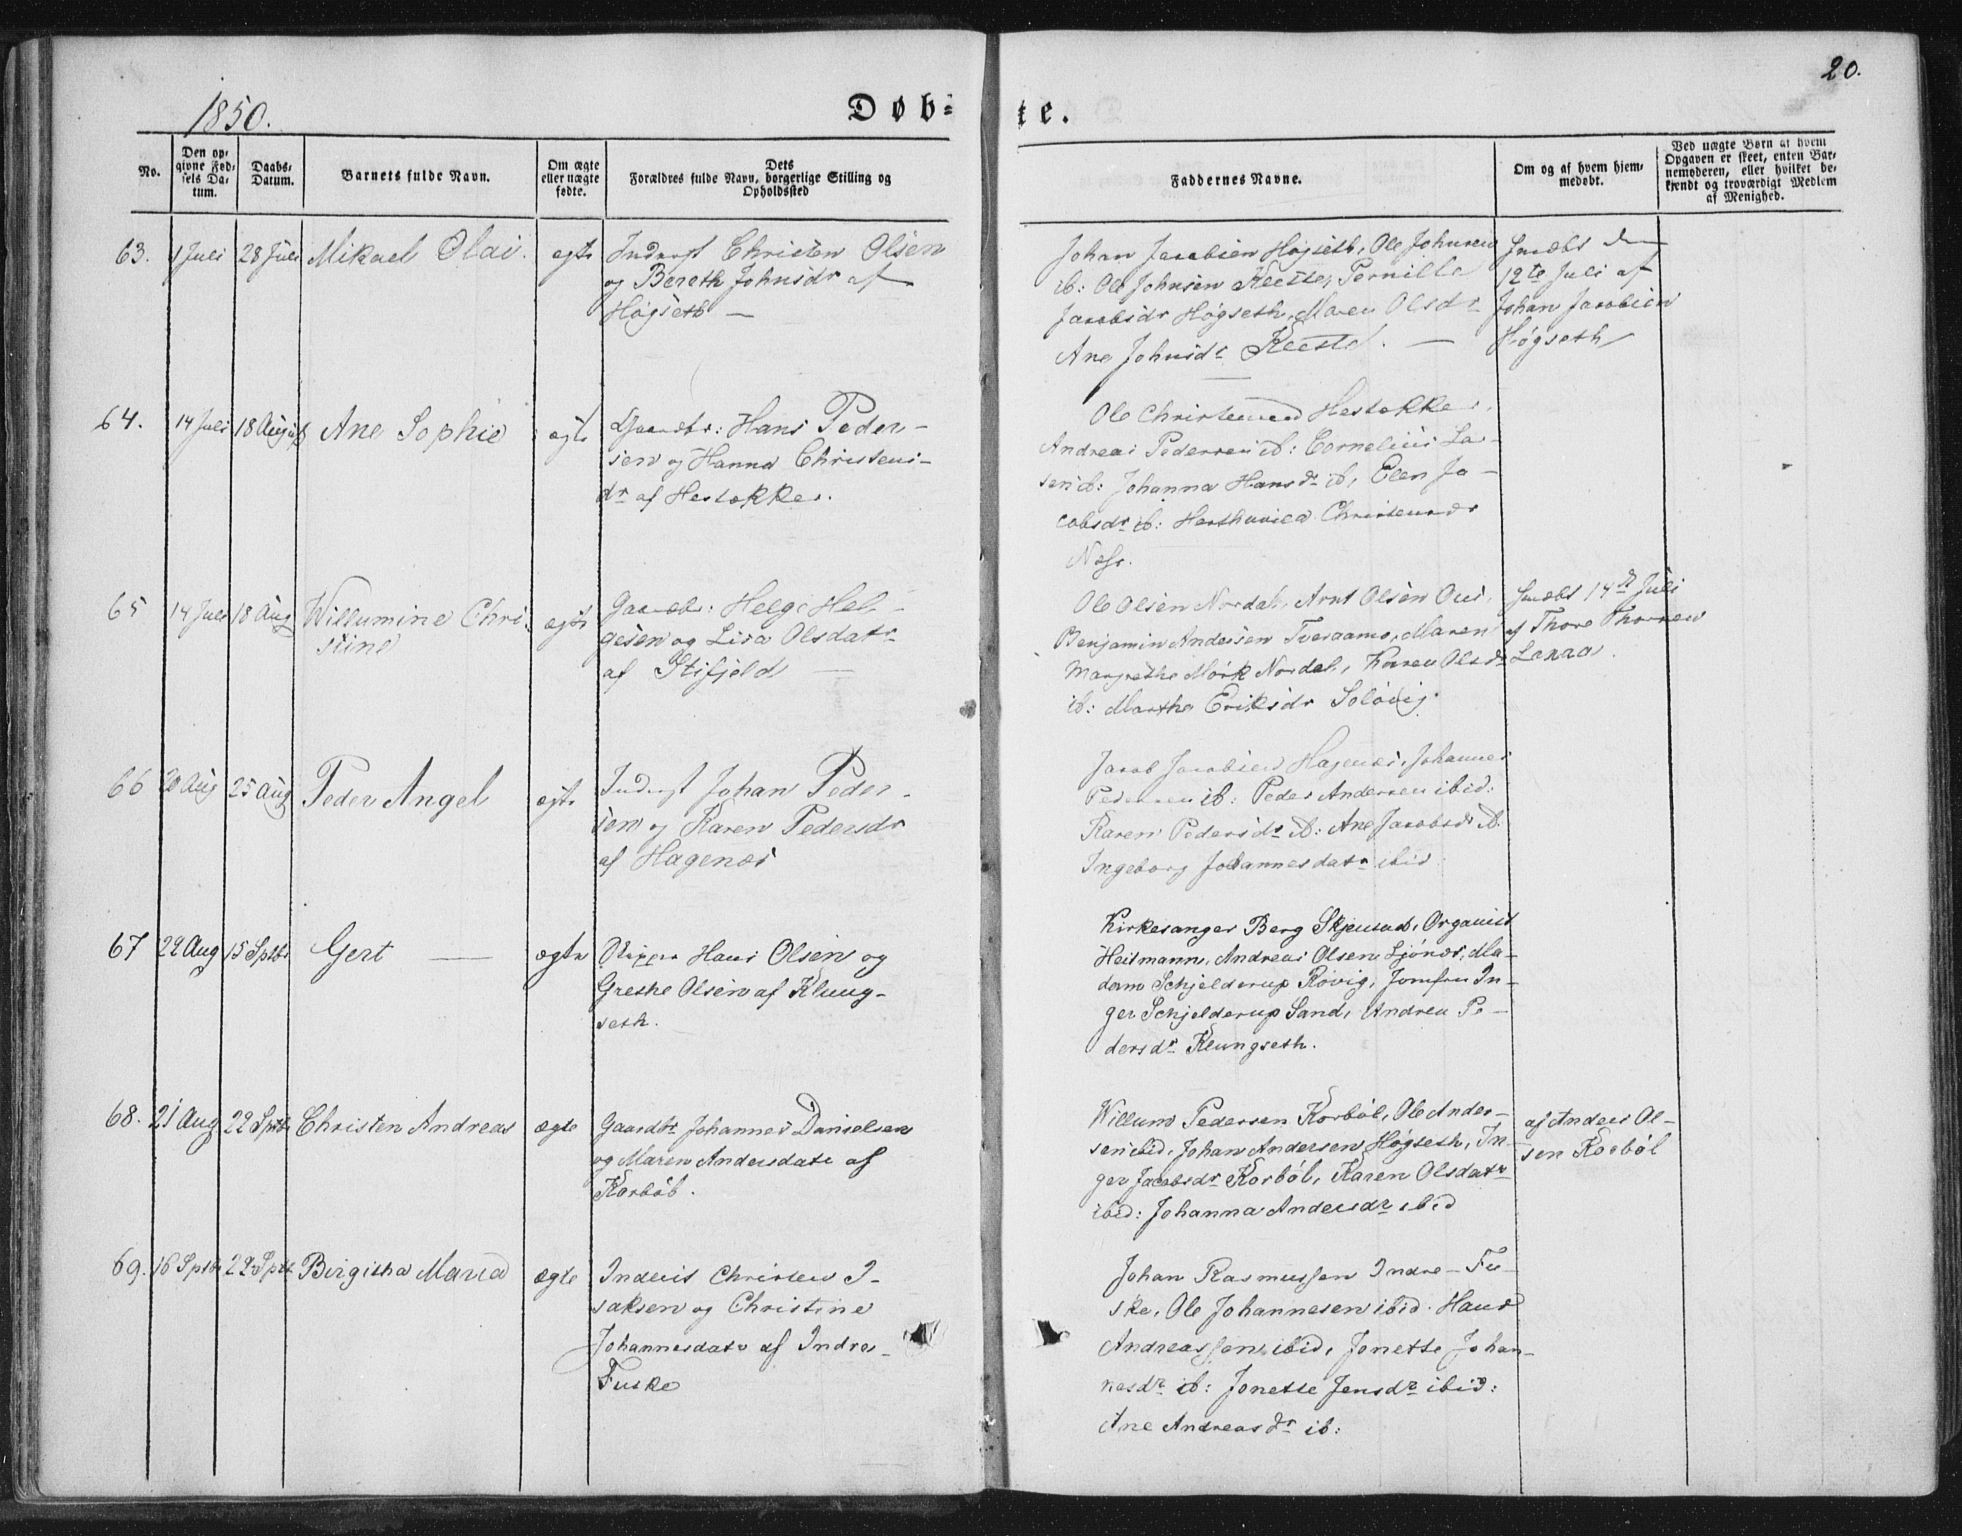 1850.
Døb-
te.
20.
No.
Den op-
givne Fød-
sels Da-
tum.
Daabs-
Datum.
Barnets fulde Navn.
Om ægte
eller uægte
fødte.
Dets
Forældres fulde Navn, borgerlige Stilling og
Opholdssted
Faddernes Navne.
Om og af hvem hjem-
medøbt.
Ved uægte Børn af hvem
Opgaven er skeet, enten Bar-
nemoderen, eller hvilket be-
kjendt og troværdigt Medlem
af Menighed.
63.
1 Juli
28 Juli
Mikael Olai.
egte
Inderst Christen Olsen
og Bereth Johnsdr af
Høgseth
Johan Jacobsen Høgseth, Ole Johnsen
ib: Ole Johnsen Pernille
Jacobsdr Høgseth, Maren Olsdr
Ane Johnsdr
den
12te Juli af
Johan Jacobsen
Høgseth
64.
14 Juli
18 August
Ane Sophie
egte
Gaardbr: Hans Peder-
sen og Hanna Christens-
dr af Hestøkker.
Ole Christensen Hestøkker,
Andreas Pedersen ib: Cornelius La-
sen ib: Johanna Hansdr ib, Elen Ja-
cobsdr ib: Christensdr
Næss.
65
14 Juli
18 Aug
Willumine Chri-
stine
egte
Gaardbr: Helge Hel-
gesen og Lisa Olsdatr
af Stifjeld
Ole Olsen Nordal, Arnt Olsen
Benjamin Andersen Tveraamo, Maren
Margrethe Mørk Nordal, Karen Olsdr
ib: Martha Eriksdr Soløvig
14d Juli
af Thore Thoresen
66
20 Aug
25 Aug
Peder Angel
egte
Inderst Johan Peder-
sen og Karen Pedersdr
af Hagenæs
Jacob Jacobsen Hagenæs, Johannes
Pedersen ib: Peder Andersen ibid:
Karen Pedersdr ib: Ane Jacobsdr ib.
Ingeborg Johannesdatr ibid.
67
22 Aug
15 Sptbr
Gert
ægte
Skipper Hans Olsen og
Grethe Olsen af Klung-
seth.
Kirkesanger Berg Skjenstad, Organist
Heitmann, Andreas Olsen Ljønes, Ma-
dam Schjelderup Røvig, Jomfru In-
ger Schjelderup Sand, Andrea Pe-
dersdr Klungseth.
68.
21 Aug
22 Sptbr
Christen Andreas
ægte
Gaardbr Johannes Danielsen
og Maren Andersdatr af
Korbøl.
Willum Pedersen Korbøl, Ole Ander-
sen ibid, Johan Andersen Høgseth, In-
ger Jacobsdr Korbøl, Karen Olsdatr
ibid: Johanna Andersdr ibid
af Anders Ol-
sen Korbøl
69.
16 Sptbr
22 Sptbr
Birgitha Maria
ægte
Inderst Christen I-
saksen og Christine
Johannesdatr af Indre-
Fuske
Johan Rasmussen Indre-Fu-
ske, Ole Johannesen ibid. Hans
Andreassen ibid, Jonette Johan-
nesdr ib: Jonette Jensdr ibid:
Ane Andreasdr ib: